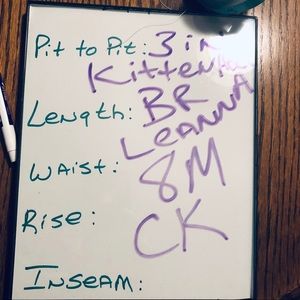 Pit to Pit: 3 in
Kitten
Length: BR
LEANNA
Waist: 8M
Rise: CK
Inseam: